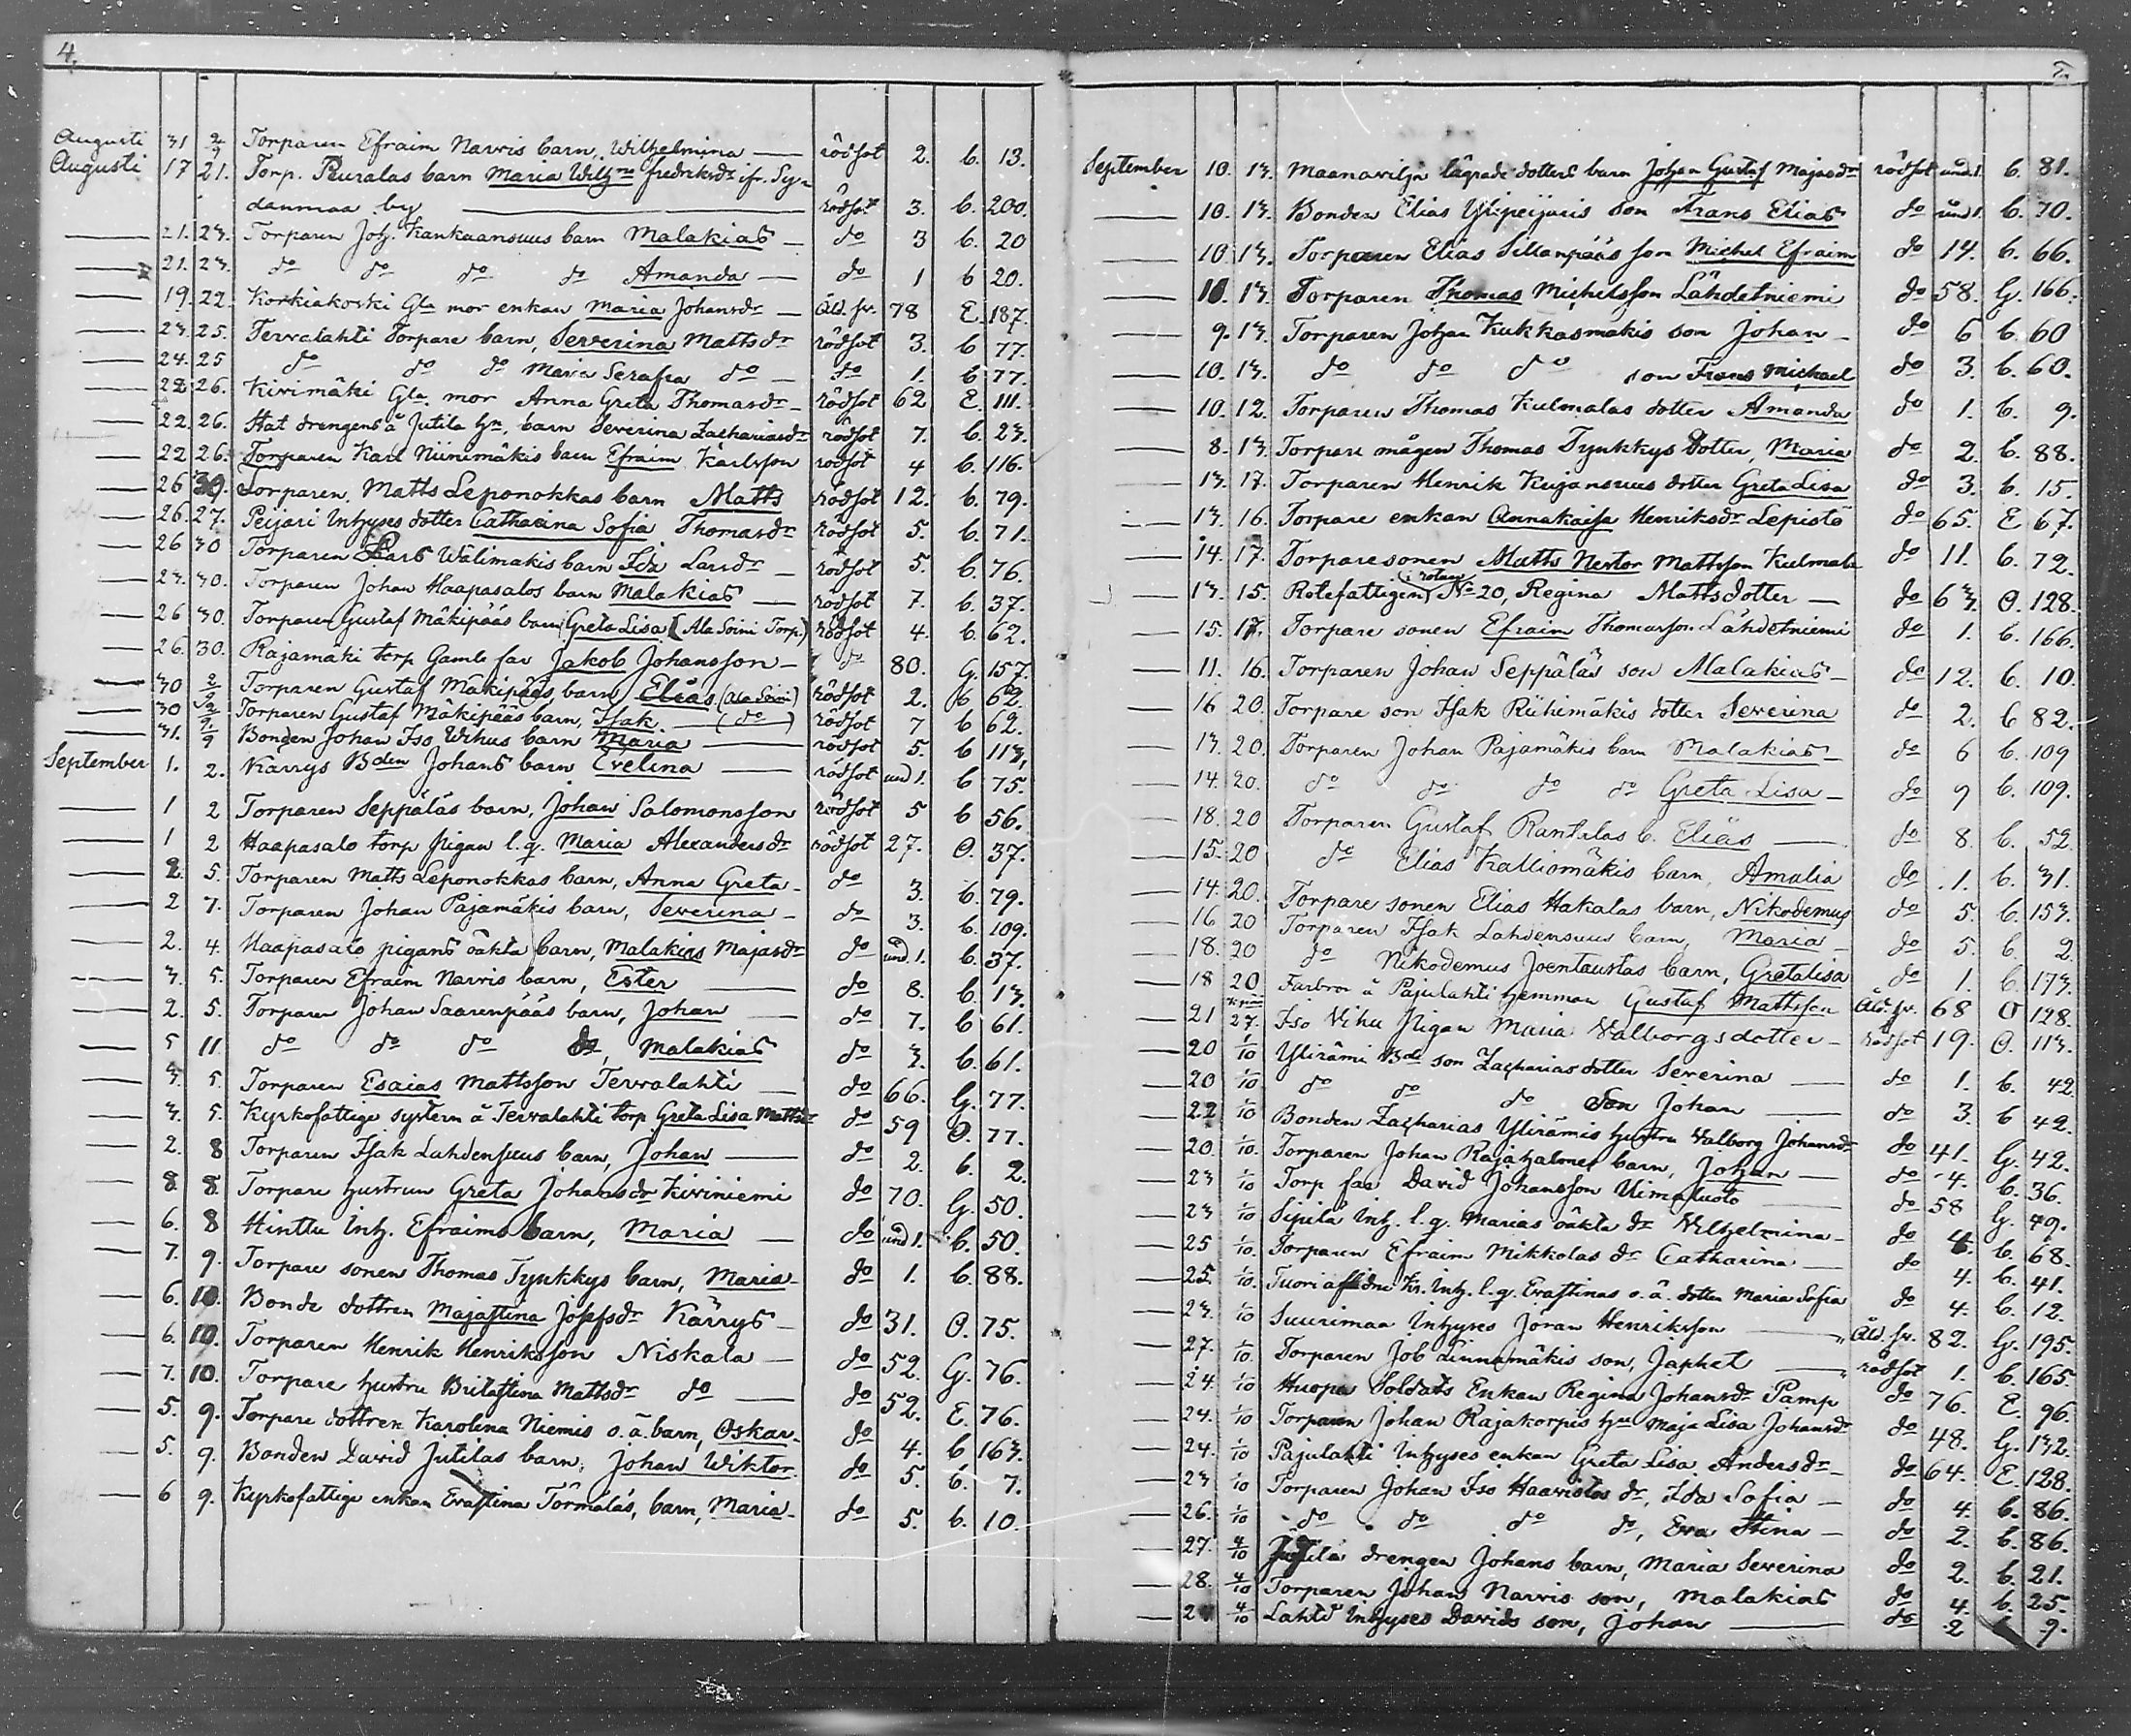 4.
Augusti 31 2/9 Torparen Efraim Narvis barn, Wilhelmina — rödsot 2. b. 13.
Augusti 17 21. Torp. Ruralas barn Maria Wilh:na fredriksdr ifr. Sy-
danmaa by — rödsot 3. b. 200.
— 21. 23. Torparen Joh. Kankaansuus barn Malakias — do 3 b. 20
— 21. 23. do do do do Amanda — do 1 b 20.
— 19. 22. Korkiakoski Gla mor enkan Maria Johansdr — Åld. sv. 78 E. 187.
— 23. 25. Tervalahti Torpare barn, Severina Mattsdr rödsot 3. b 77.
— 24. 25 do do do Maria Serafia do — do 1. b 77.
— 22. 26. Kivimäki Gla mor Anna Greta Thomasdr — rödsot 62 E. 111.
— 22. 26. Stat drengens å Jutila hn, barn Severina Zachariasdr rödsot 7. b. 23.
— 22 26. Torparen Karl Niinimäkis barn Efraim Karlsson rödsot 4 b. 116.
— 26 30. Torparen Matts Leponokkas barn Matts rödsot 12. b. 79.
— 26. 27. Peijari Inhyses dotter Catharina Sofia Thomasdr rödsot 5. b. 71.
— 26 30 Torparen Lars Wälimäkis barn Ida Larsdr — rödsot 5. b. 76.
— 23. 30. Torparen Johan Haapasalos barn Malakias — rödsot 7. b. 37.
— 26 30. Torparen Gustaf Mäkipääs barn Greta Lisa (Ala Soini Torp.) rödsot 4. b. 62.
— 26. 30. Rajamäki torp Gamle far Jakob Johansson — do 80. G. 157.
— 30 2/9 Torparen Gustaf Mäkipääs, barn, Elias (Ala Soini) rödsot 2. b 62.
— 30 2/9 Torparen Gustaf Mäkipääs barn, Isak — (do) rödsot 7 b 62.
— 31. 2/9 Bonden Johan Iso Wihus barn Maria — rödsot 5. b 113.
September 1. 2. Karrys Bden Johans barn Evelina — rödsot und 1. b 75.
— 1 2 Torparen Seppäläs barn, Johan Salomonsson rödsot 5 b 56.
— 1 2 Haapasalo torp Pigan l.q. Maria Alexandersdr rödsot 27. O. 37.
— 2. 5. Torparen Matts Leponokkas barn, Anna Greta — do 3. b. 79.
— 2 7. Torparen Johan Pajamäkis barn, Severina — do 3. b. 109.
— 2. 4. Haapasalo pigans oäkta barn, Malakias Majasdr do und. 1. b. 37.
— 3. 5. Torparen Efraim Narvis barn, Ester — do 8. b. 13.
— 2. 5. Torparen Johan Saarenpääs barn, Johan — do 7. b 61.
— 5 11 do do do do, Malakias do 3. b. 61.
— 3. 5. Torparen Esaias Mattsson Tervalahti — do 66. G. 77.
— 3. 5. Kyrkofattige systern å Tervalahti torp Greta Lisa Mattsdr do 59 O. 77.
— 2. 8 Torparen Isak Lahdensuus barn, Johan — do 2. b. 2.
— 8. 8. Torpare hustrun Greta Johansdr Kiviniemi do 70. G. 50.
— 6. 8 Hinttu Inh. Efraims barn, Maria — do und 1. b. 50.
— 7. 9. Torpare sonen Thomas Tynkkys barn, Maria — do 1. b. 88.
— 6. 10. Bonde dottren Majastina Josefsdr Kärrys — do 31. O. 75.
— 6. 10. Torparen Henrik Henriksson Niskala — do 52. G. 76.
— 7. 10. Torpare hustru Britastina Mattsdr do — do 52. E. 76.
— 5. 9. Torpare dottren Karolina Niemis o.ä. barn, Oskar. do 4. b 163.
— 5. 9. Bonden David Jutilas barn, Johan Wiktor. do 5. b. 7.
— 6 9. Kyrkofattige enkan Evastina Törmäläs, barn, Maria. do 5. b. 10.
5.
September 10. 13. Maanavilja lägrade dotters barn Johan Gustaf Majasdr rödsot und. 1. b. 81.
— 10. 13. Bonden Elias Ylipeijaris son Frans Elias do und 1. b. 70.
— 10. 13. Torparen Elias Sillanpääs son Michel Efraim do 14. b. 66.
— 10. 13. Torparen Thomas Michelsson Lähdetniemi do 58. G. 166.
— 9. 13. Torparen Johan Kukkasmäkis son Johan — do 6 b. 60
— 10. 13. do do do son Frans Michael do 3. b. 60.
— 10. 12. Torparen Thomas Kulmalas dotter Amanda do 1. b. 9.
— 8. 13. Torpare mågen Thomas Tynkkys dotter, Maria do 2. b. 88.
— 13. 17. Torparen Henrik Kujansuus dotter Greta Lisa do 3. b. 15.
— 13. 16. Torpare enkan Annakaisa Henriksdr Lepistö do 65. E 67.
— 14. 17. Torparesonen Matts Nestor Mattsson Kulmala do 11. b. 72.
— 13. 15. Rotefattigen (i rotan) No 20, Regina Mattsdotter — do 63. O. 128.
— 15. 17. Torpare sonen Efraim Thomasson Lähdetniemi do 1. b. 166.
— 11. 16. Torparen Johan Seppäläs son Malakias — do 12. b. 10.
— 16 20. Torpare son Isak Riihimäkis dotter Severina do 2. b 82.
— 13. 20. Torparen Johan Pajamäkis barn Malakias — do 6 b. 109
— 14. 20. do do do do Greta Lisa — do 9 b. 109.
— 18. 20 Torparen Gustaf Rantalas b. Elias — do 8. b. 52.
— 15. 20 do Elias Kalliomäkis barn, Amalia do 1. b. 31.
— 14. 20. Torpare sonen Elias Hakalas barn, Nikodemus do 5. b. 153.
— 16 20 Torparen Isak Lahdensuus barn, Maria — do 5. b. 2.
— 18. 20 do Nikodemus Joentaustas barn, Gretalisa do 1. b. 173.
— 18 20 Farbror å Pajulahti hemman Gustaf Mattsson Åld. sv. 68 O 128.
— 21 27. Iso Vihu Pigan Maria Valborgsdotter — rödsot 19. O. 113.
— 20 1/10 Ylirämi Bde son Zacharias dotter Severina — do 1. b. 42
— 20 1/10 do do do Son Johan — do 3. b 42.
— 22 1/10 Bonden Zacharias Ylirämis hustru Valborg Johansdr do 41. G. 42.
— 20. 1/10. Torparen Johan Rajahalmes barn, Johan — do 4. b. 36.
— 23 1/10 Torp far David Johansson Uimaluoto — do 58 G. 49.
— 23 1/10 Sipilä Inh. l.q. Marias oäkta dr Wilhelmina — do b. 68.
— 25 1/10. Torparen Efraim Mikkolas dr Catharina — do 4. b. 41.
— 25. 1/10. Tuori Inh. l.q. Evastinas o.ä. dotter Maria Sofia do 4. b. 12.
— 23. 1/10 Suurimaa Inhyses Jöran Henriksson — Åld. sv. 82. G. 195.
— 27. 1/10. Torparen Job Linnamäkis son, Japhet — rödsot 1. b. 165.
— 24. 1/10 Huopa Soldats Enkan Regina Johansdr Pamp do 76. E. 96.
— 24. 1/10 Torparen Johan Rajakorpis hu Maja Lisa Johansdr do 48. G. 132.
— 24. 1/10 Pajulahti Inhyses enkan Greta Lisa Andersdr — do 64. E. 128.
— 23 1/10 Torparen Johan Iso Haavistos dr, Ida Sofia — do 4. b. 86.
— 26. 1/10 do do do do, Eva Stina — do 2. b. 86.
— 27. 4/10 Jutila drengen Johans barn, Maria Severina do 2. b. 21.
— 28. 4/10 Torparen Johan Narvis son, Malakias do 4. b. 25.
— 4/10 Lahti Inhyses Davids son, Johan — do 2 9.